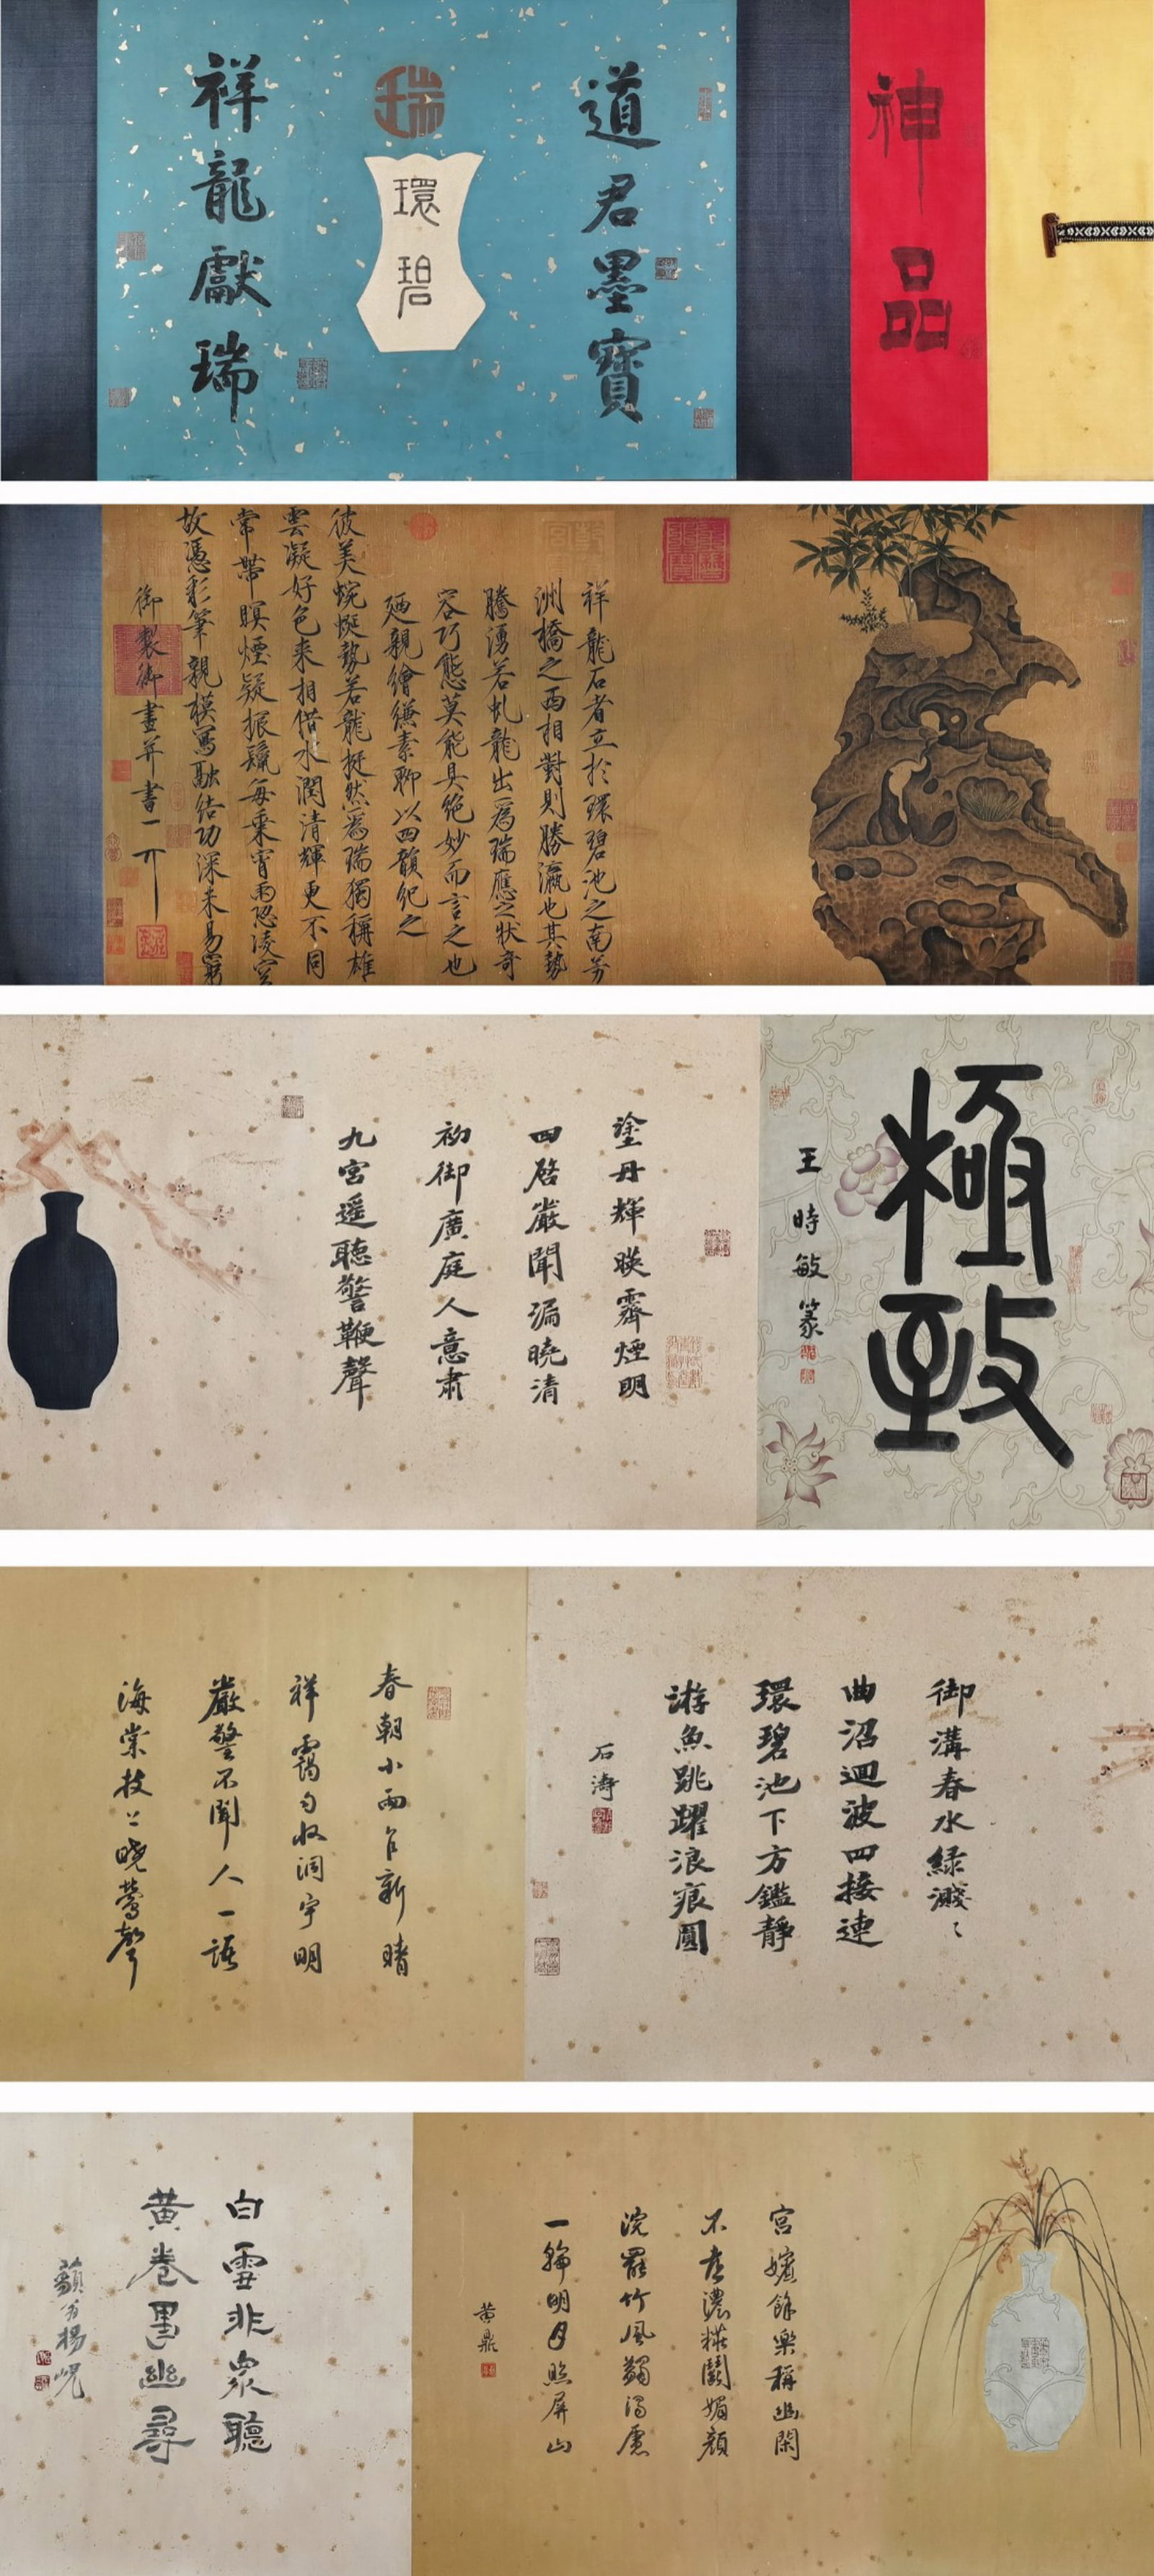 神品
道君墨寶
瑞
環碧
祥龍獻瑞
祥龍石者立於環碧池之南芳
洲橋之西相對則勝瀛也其勢
騰湧若虬龍出為瑞應之狀奇
容巧態莫能具絕妙而言之也
廼親繪縑素聊以四韻紀之
彼美蜿蜒勢若龍挺然為瑞獨稱雄
雲凝好色來相借水潤清輝更不同
常帶暝煙疑振鬣每乘宵雨恐凌空
故憑彩筆親模寫融結功深未易窮
御製御畫并書
極致
王時敏篆
塗丹輝映霽煙明
四啓嚴聞漏曉清
初御廣庭人意肅
九宮遥聽警鞭聲
御溝春水緑濺〻
曲沼迴波四接連
環碧池下方鑑靜
游魚跳躍浪痕圓
石濤
春朝小雨乍新晴
祥靄勻收洞宇明
嚴警不聞人一語
海棠枝上曉鶯聲
宮嬪餘樂稱幽閑
不老濃粧鬪媚顏
浣罷竹風蠲溽慮
一輪明月照屏山
黃鼎
白雪非衆聽
黃卷墨幽尋
藐翁楊峴